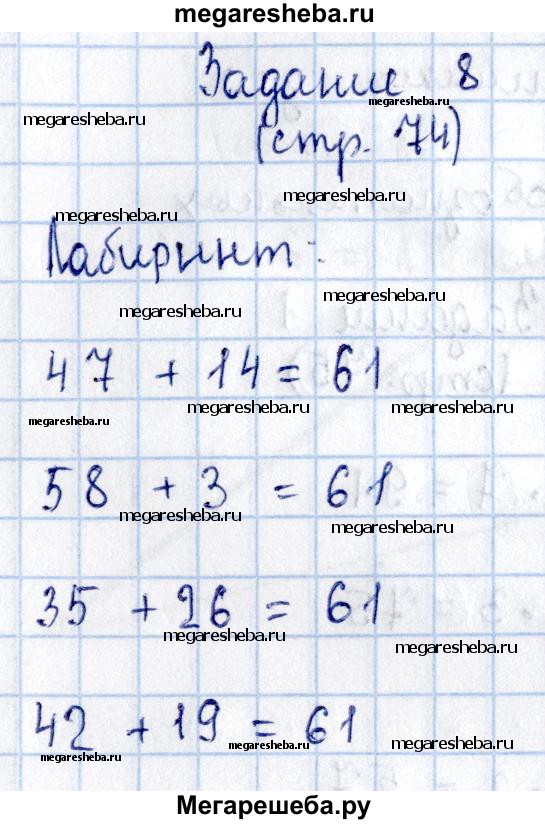 megaresheba.ru
Задание 8
megaresheba.ru
megaresheba.ru
(стр. 74)
megaresheba.ru
megaresheba.ru
Лабиринт:
megaresheba.ru
megaresheba.ru
47 + 14 = 61
megaresheba.ru megaresheba.ru megaresheba.ru
58 + 3 = 61
megaresheba.ru megaresheba.ru
35 + 26 = 61
megaresheba.ru megaresheba.ru
42 + 19 = 61
megaresheba.ru megaresheba.ru megaresheba.ru
Мегарешеба.ру